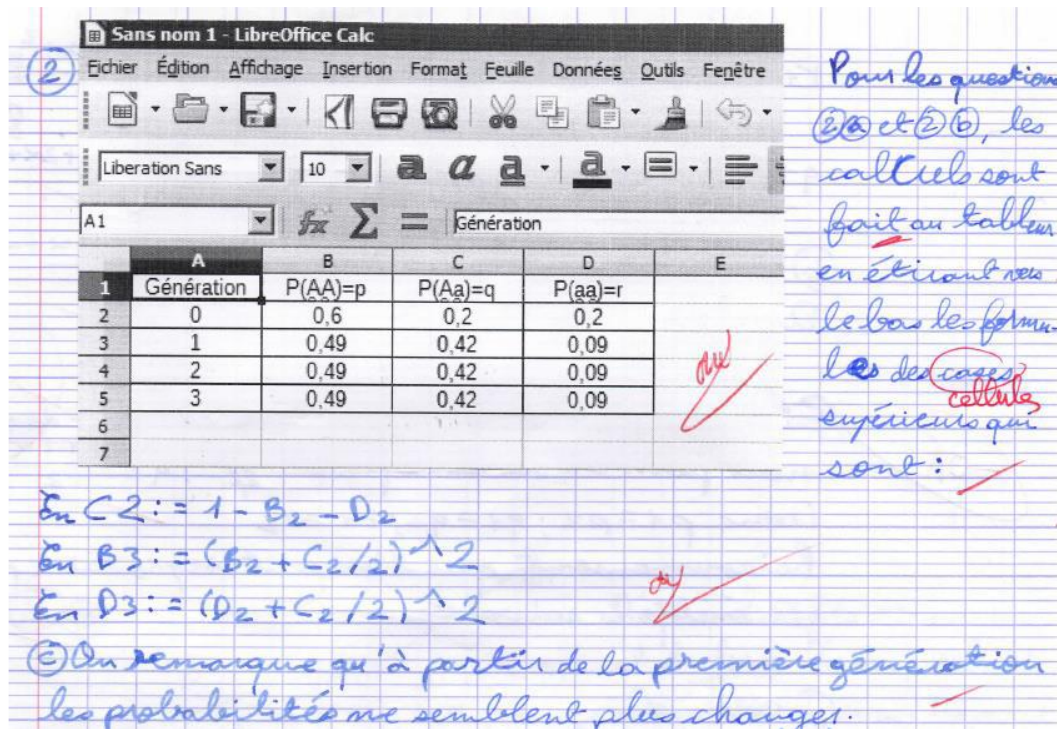 ②
Sans nom 1 - LibreOffice Calc
Fichier Édition Affichage Insertion Format Feuille Données Outils Fenêtre
Liberation Sans 10 a a a a
A1 fx Σ = Génération
A B C D E
1 Génération P(AA)=p P(Aa)=q P(aa)=r
2 0 0,6 0,2 0,2
3 1 0,49 0,42 0,09
4 2 0,49 0,42 0,09
5 3 0,49 0,42 0,09
6
7
Pour les questions
②ⓐ et ②ⓑ, les
calculs sont
fait au tableur
en étirant vers
le bas les formu-
les des cases
cellules
supérieurs qui
sont :
oui
En C2 : = 1 - B2 - D2
En B3 : = (B2 + C2/2)^2
En D3 : = (D2 + C2/2)^2
ⓒ On remarque qu'à partir de la première génération
les probabilités ne semblent plus changer.